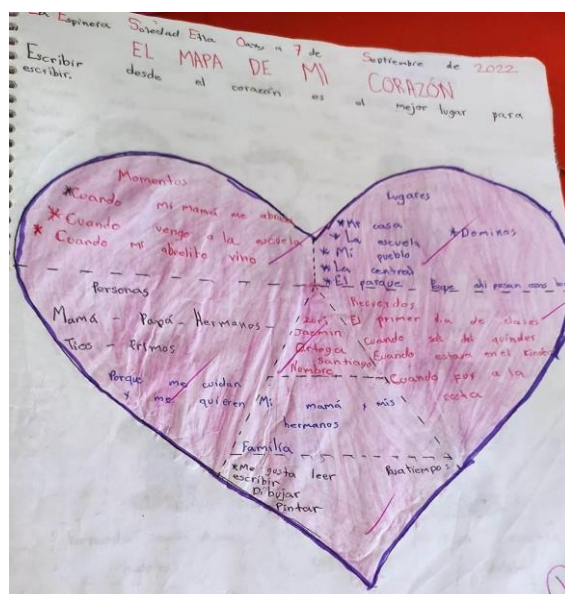 Espinera Soledad Etla Oaxaca a 7 de Septiembre de 2022
EL MAPA DE MI CORAZÓN
Escribir desde el corazón es el mejor lugar para
escribir.
Momentos
* Cuando mi mamá me abraza
* Cuando vengo a la escuela
* Cuando mi abuelito vino
Lugares
* Mi casa
* La escuela
* Mi pueblo
* La central
* El parque
* Dominos
Personas
Mamá - Papá - Hermanos -
Tios - Primos
Porque me cuidan
y me quieren
Jazmin
Ortega
Santiago
Nombre
Recuerdos
El primer dia de clases
Cuando sali del quinder
Cuando estaba en el
Cuando fui a la
Mi mamá y mis
hermanos
Familia
* Me gusta leer
escribir
Dibujar
Pintar
Pasatiempos